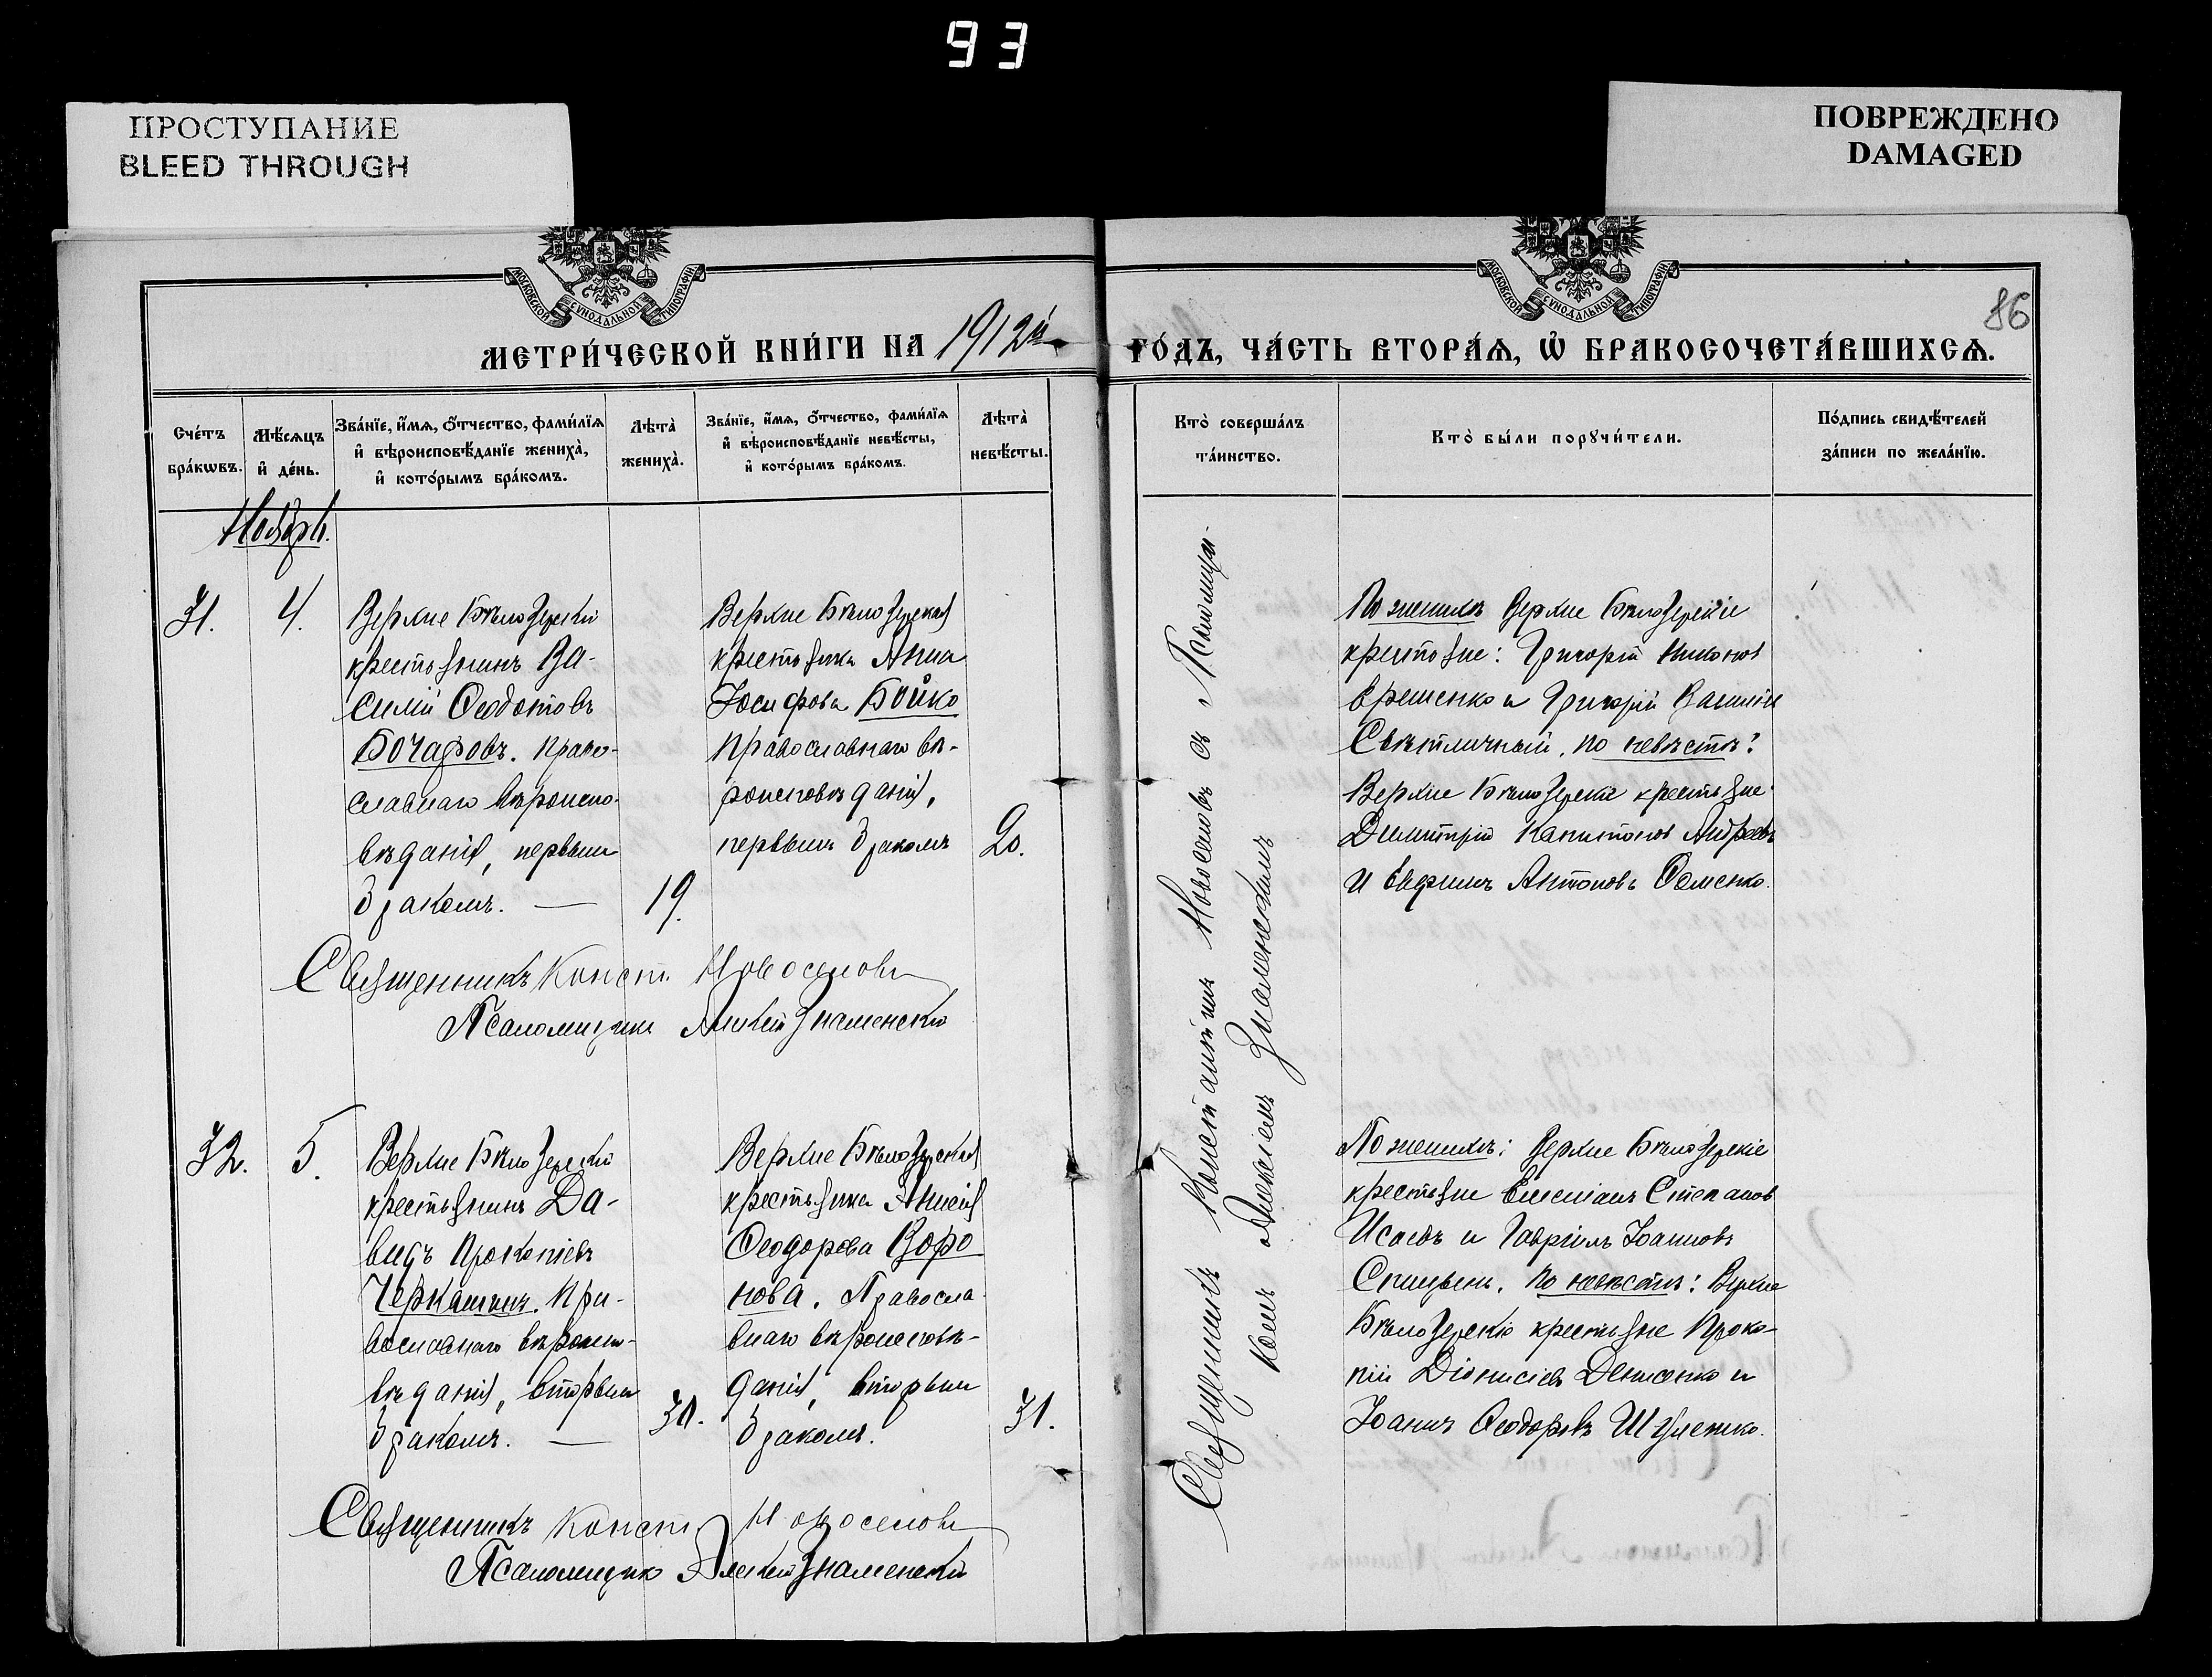 93
ПРОСТУПАНИЕ
BLEED THROUGH
ПОВРЕЖДЕНО
DAMAGED
МОСКОВСКОЙ СѴНОДАЛЬНОЙ ТИПОГРАФІИ
МОСКОВСКОЙ СѴНОДАЛЬНОЙ ТИПОГРАФІИ
86
МЕТРИ́ЧЕСКОЙ КНИ́ГИ НА 1912й
ГО́ДЪ, ЧА́СТЬ ВТОРА́Ѧ, Ѽ БРАКОСОЧЕТА́ВШИХСѦ.
Сче́тъ
бра́кѡвъ.
Мѣ́сѧцъ
и҆ де́нь.
Зва́нїе, и҆́мѧ, ѻ҆́тчество, фами́лїѧ
и҆ вѣроисповѣ́данїе жениха̀,
и҆ кото́рымъ бра́комъ.
Лѣ́та
жениха̀.
Зва́нїе, и҆́мѧ, ѻ҆́тчество, фами́лїѧ
и҆ вѣроисповѣ́данїе невѣ́сты,
и҆ кото́рымъ бра́комъ.
Лѣ́та
невѣ́сты.
Кто̀ соверша́лъ
та́инство.
Кто̀ бы́ли порꙋчи́тели.
По́дпись свидѣ́телей
за́писи по жела́нїю.
Ноябрь.
31.
4.
Верхне Бѣлозерскій
крестьянинъ Ва-
силій Ѳеодотовъ
Бочаровъ. Право-
славнаго вѣроиспо-
вѣданія, первымъ
бракомъ. —
19.
Верхне Бѣлозерская
крестьянка Анна
Іосифова Бойко
Православнаго вѣ-
роисповѣданія,
первымъ бракомъ
20.
Священникъ Константинъ Новоселовъ съ Псаломщи-
комъ Алексіемъ Знаменскимъ
По женихѣ Верхне Бѣлозерскіе
крестьяне: Григорій Никоновъ
Григорій Василіевъ
Свѣтличный, по невѣстѣ:
Верхне Бѣлозерскіе крестьяне
Димитрій Капитоновъ Андреевъ
и Евфимъ Антоновъ
Священникъ Конст. Новоселовъ
Псаломщикъ Алексій Знаменскій
32.
5.
Верхне Бѣлозерскій
крестьянинъ Да-
видъ Прокопіевъ
Черкашинъ. Пра-
вославнаго вѣроиспо-
вѣданія, вторымъ
бракомъ. —
Верхне Бѣлозерская
крестьянка Анисія
Ѳеодорова Воро
нова. Правосла-
внаго вѣроисповѣ-
данія, вторымъ
бракомъ.
31.
По женихѣ: Верхне Бѣлозерскіе
крестьяне Емеліанъ Степановъ
Исаевъ и Гавріилъ Іоанновъ
по невѣстѣ: Верхне
Бѣлозерскіе крестьяне Проко-
пій Діонисіевъ Денисенко и
Іоаннъ Ѳеодоровъ
Священникъ Конст. Новоселовъ
Псаломщикъ Алексій Знаменскій